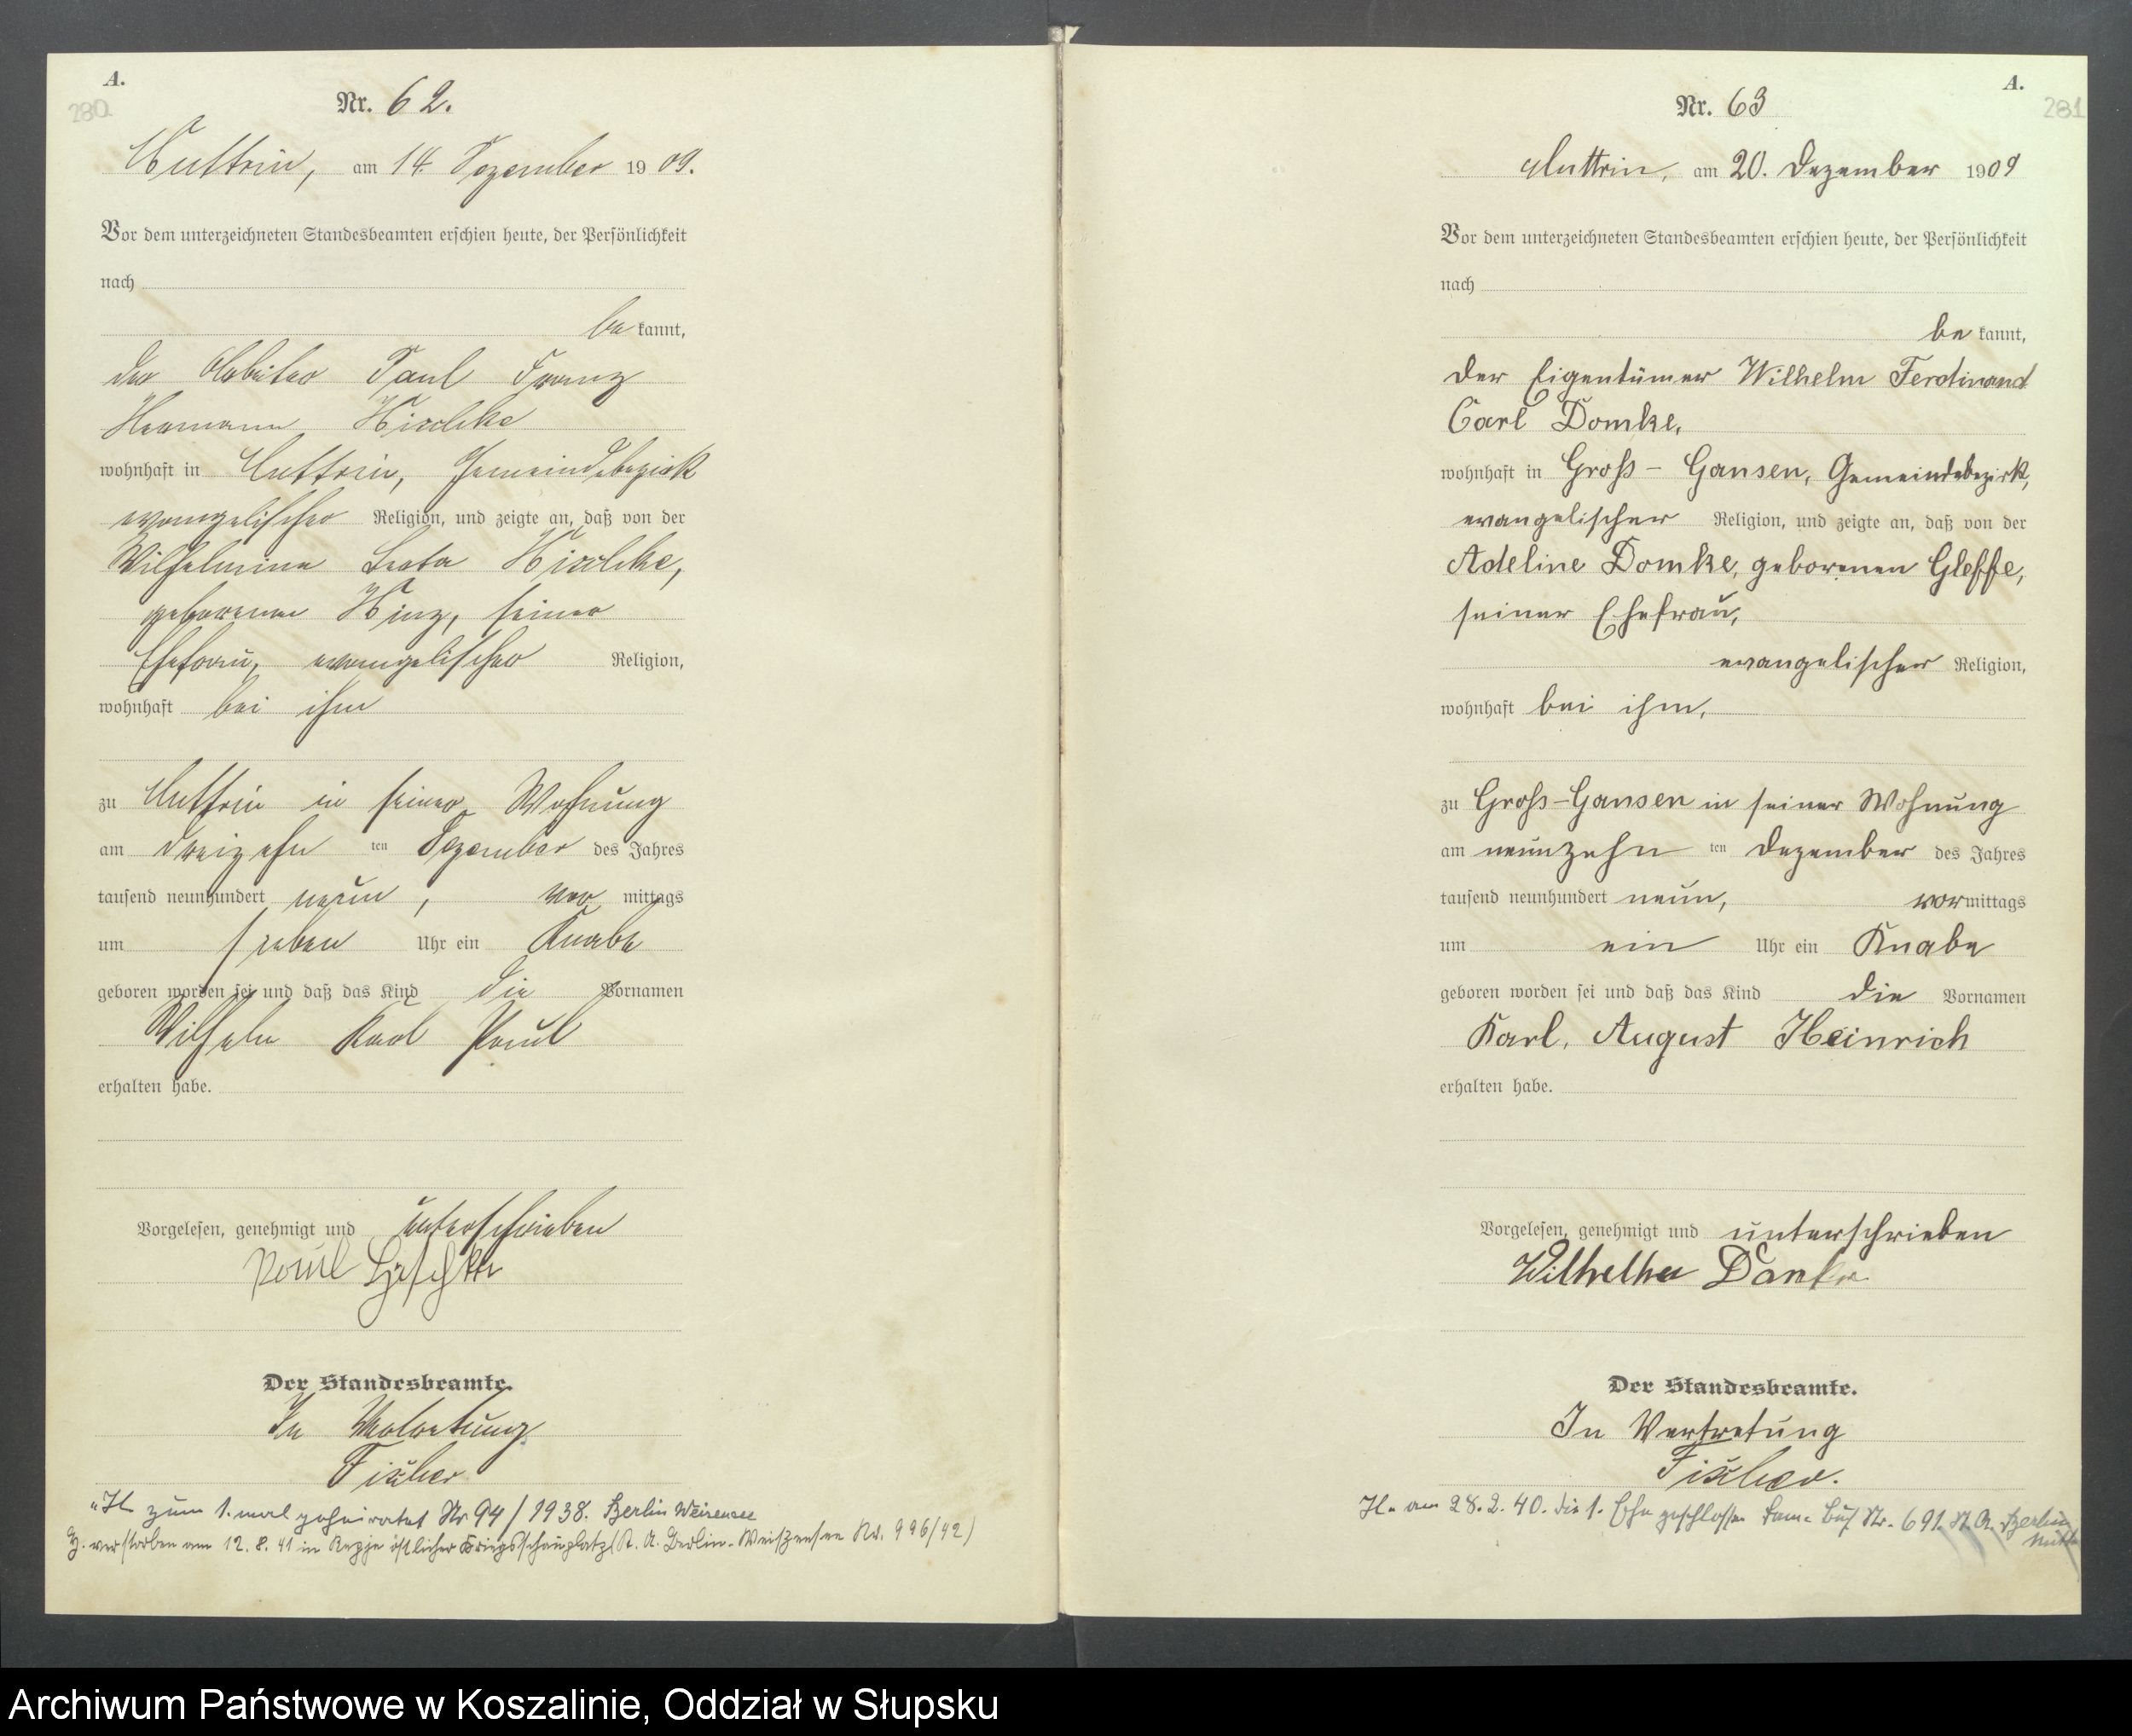 A.
280
Nr. 62.
Muttrin, am 14. Dezember 1909.
Vor dem unterzeichneten Standesbeamten erschien heute, der Persönlichkeit
nach
be kannt,
der Arbeiter Paul Franz
Hermann
wohnhaft in Muttrin, Gemeindebezirk
evangelischer Religion, und zeigte an, daß von der
Wilhelmine
geborenen Hinz, seiner
Ehefrau, evangelischer Religion,
wohnhaft bei ihm
zu Muttrin in seiner Wohnung
am dreizehn ten Dezember des Jahres
tausend neunhundert neun, vor mittags
um sieben Uhr ein Knabe
geboren worden sei und daß das Kind die Vornamen
Wilhelm Karl Paul
erhalten habe.
Vorgelesen, genehmigt und unterschrieben
Paul
Der Standesbeamte.
In Vertretung
Fischer
zum 1. mal geheiratet Nr 94/1938. Berlin Weissensee
verstorben am 12. 8. 41 in östlicher Kriegsschauplatz (St. A. Berlin-Weißensee Nr. 996/42)
A.
281
Nr. 63
Muttrin, am 20. Dezember 1909
Vor dem unterzeichneten Standesbeamten erschien heute, der Persönlichkeit
nach
be kannt,
der Eigentümer Wilhelm Ferdinand
Carl Domke,
wohnhaft in Groß-Gansen, Gemeindebezirk,
evangelischer Religion, und zeigte an, daß von der
Adeline Domke, geborenen Gleffe,
seiner Ehefrau,
evangelischer Religion,
wohnhaft bei ihm,
zu Groß-Gansen in seiner Wohnung
am neunzehn ten Dezember des Jahres
tausend neunhundert neun, vormittags
um ein Uhr ein Knabe
geboren worden sei und daß das Kind die Vornamen
Karl, August Heinrich
erhalten habe.
Vorgelesen, genehmigt und unterschrieben
Wilhelm Domke
Der Standesbeamte.
In Vertretung
Fischer.
H. am 28. 2. 40. die 1. Ehe geschlossen Nr. 691. St. A. Berlin
Mitte
Archiwum Państwowe w Koszalinie, Oddział w Słupsku